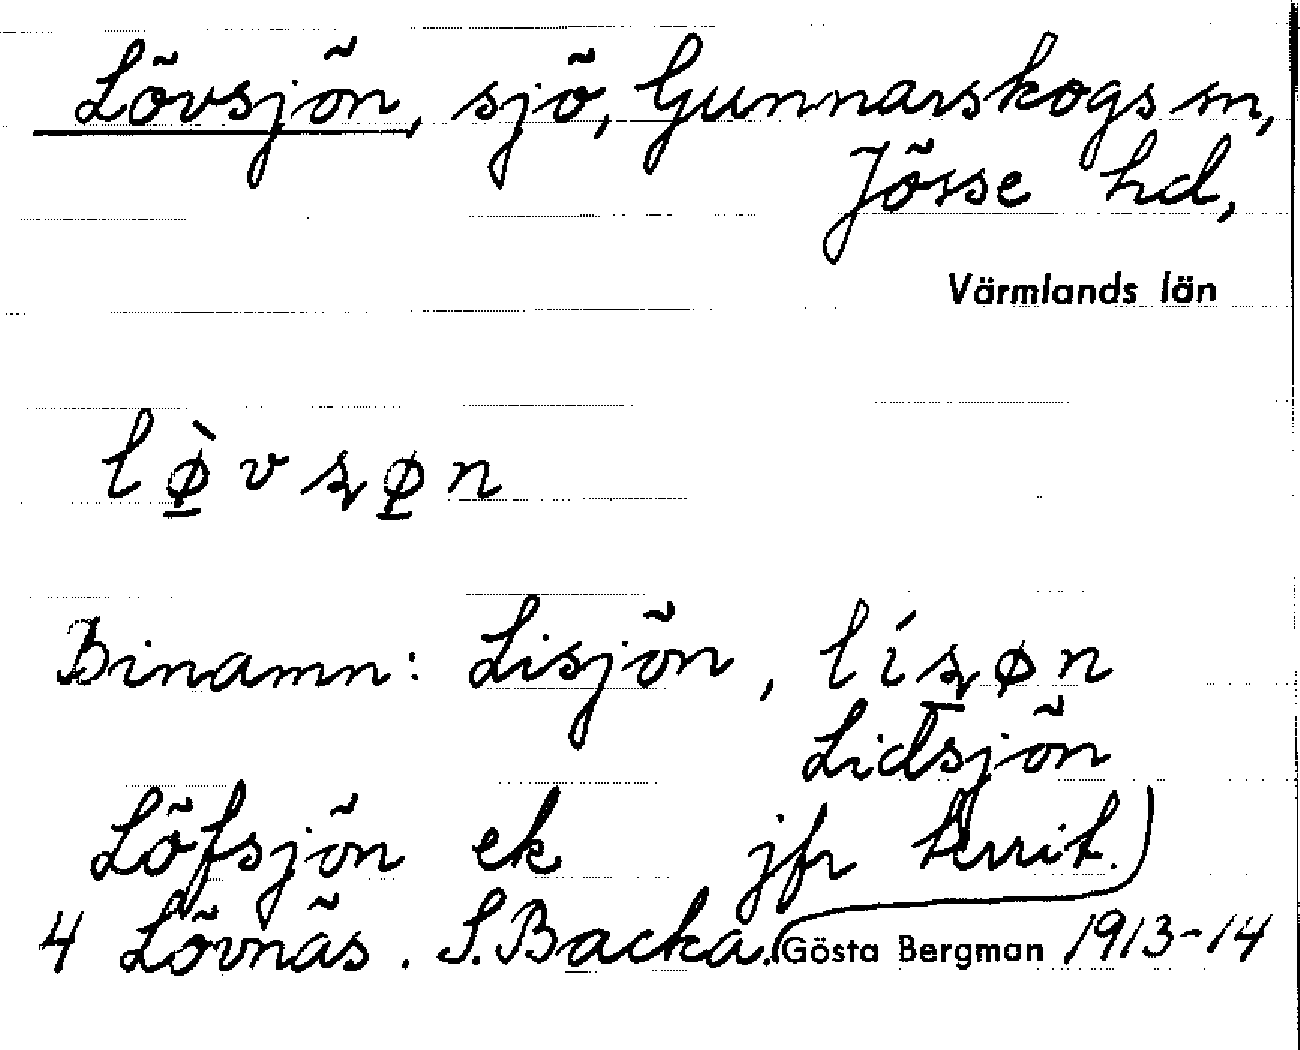 Lövsjön, sjö, Gunnarskogs sn,
Jösse hd,
Värmlands län
lø̲̀vsø̲n
Binamn: Lisjön, lísøn
Lidsjön
Löfsjön ek jfr territ.
4 Lövnäs. S. Backa. Gösta Bergman 1913-14